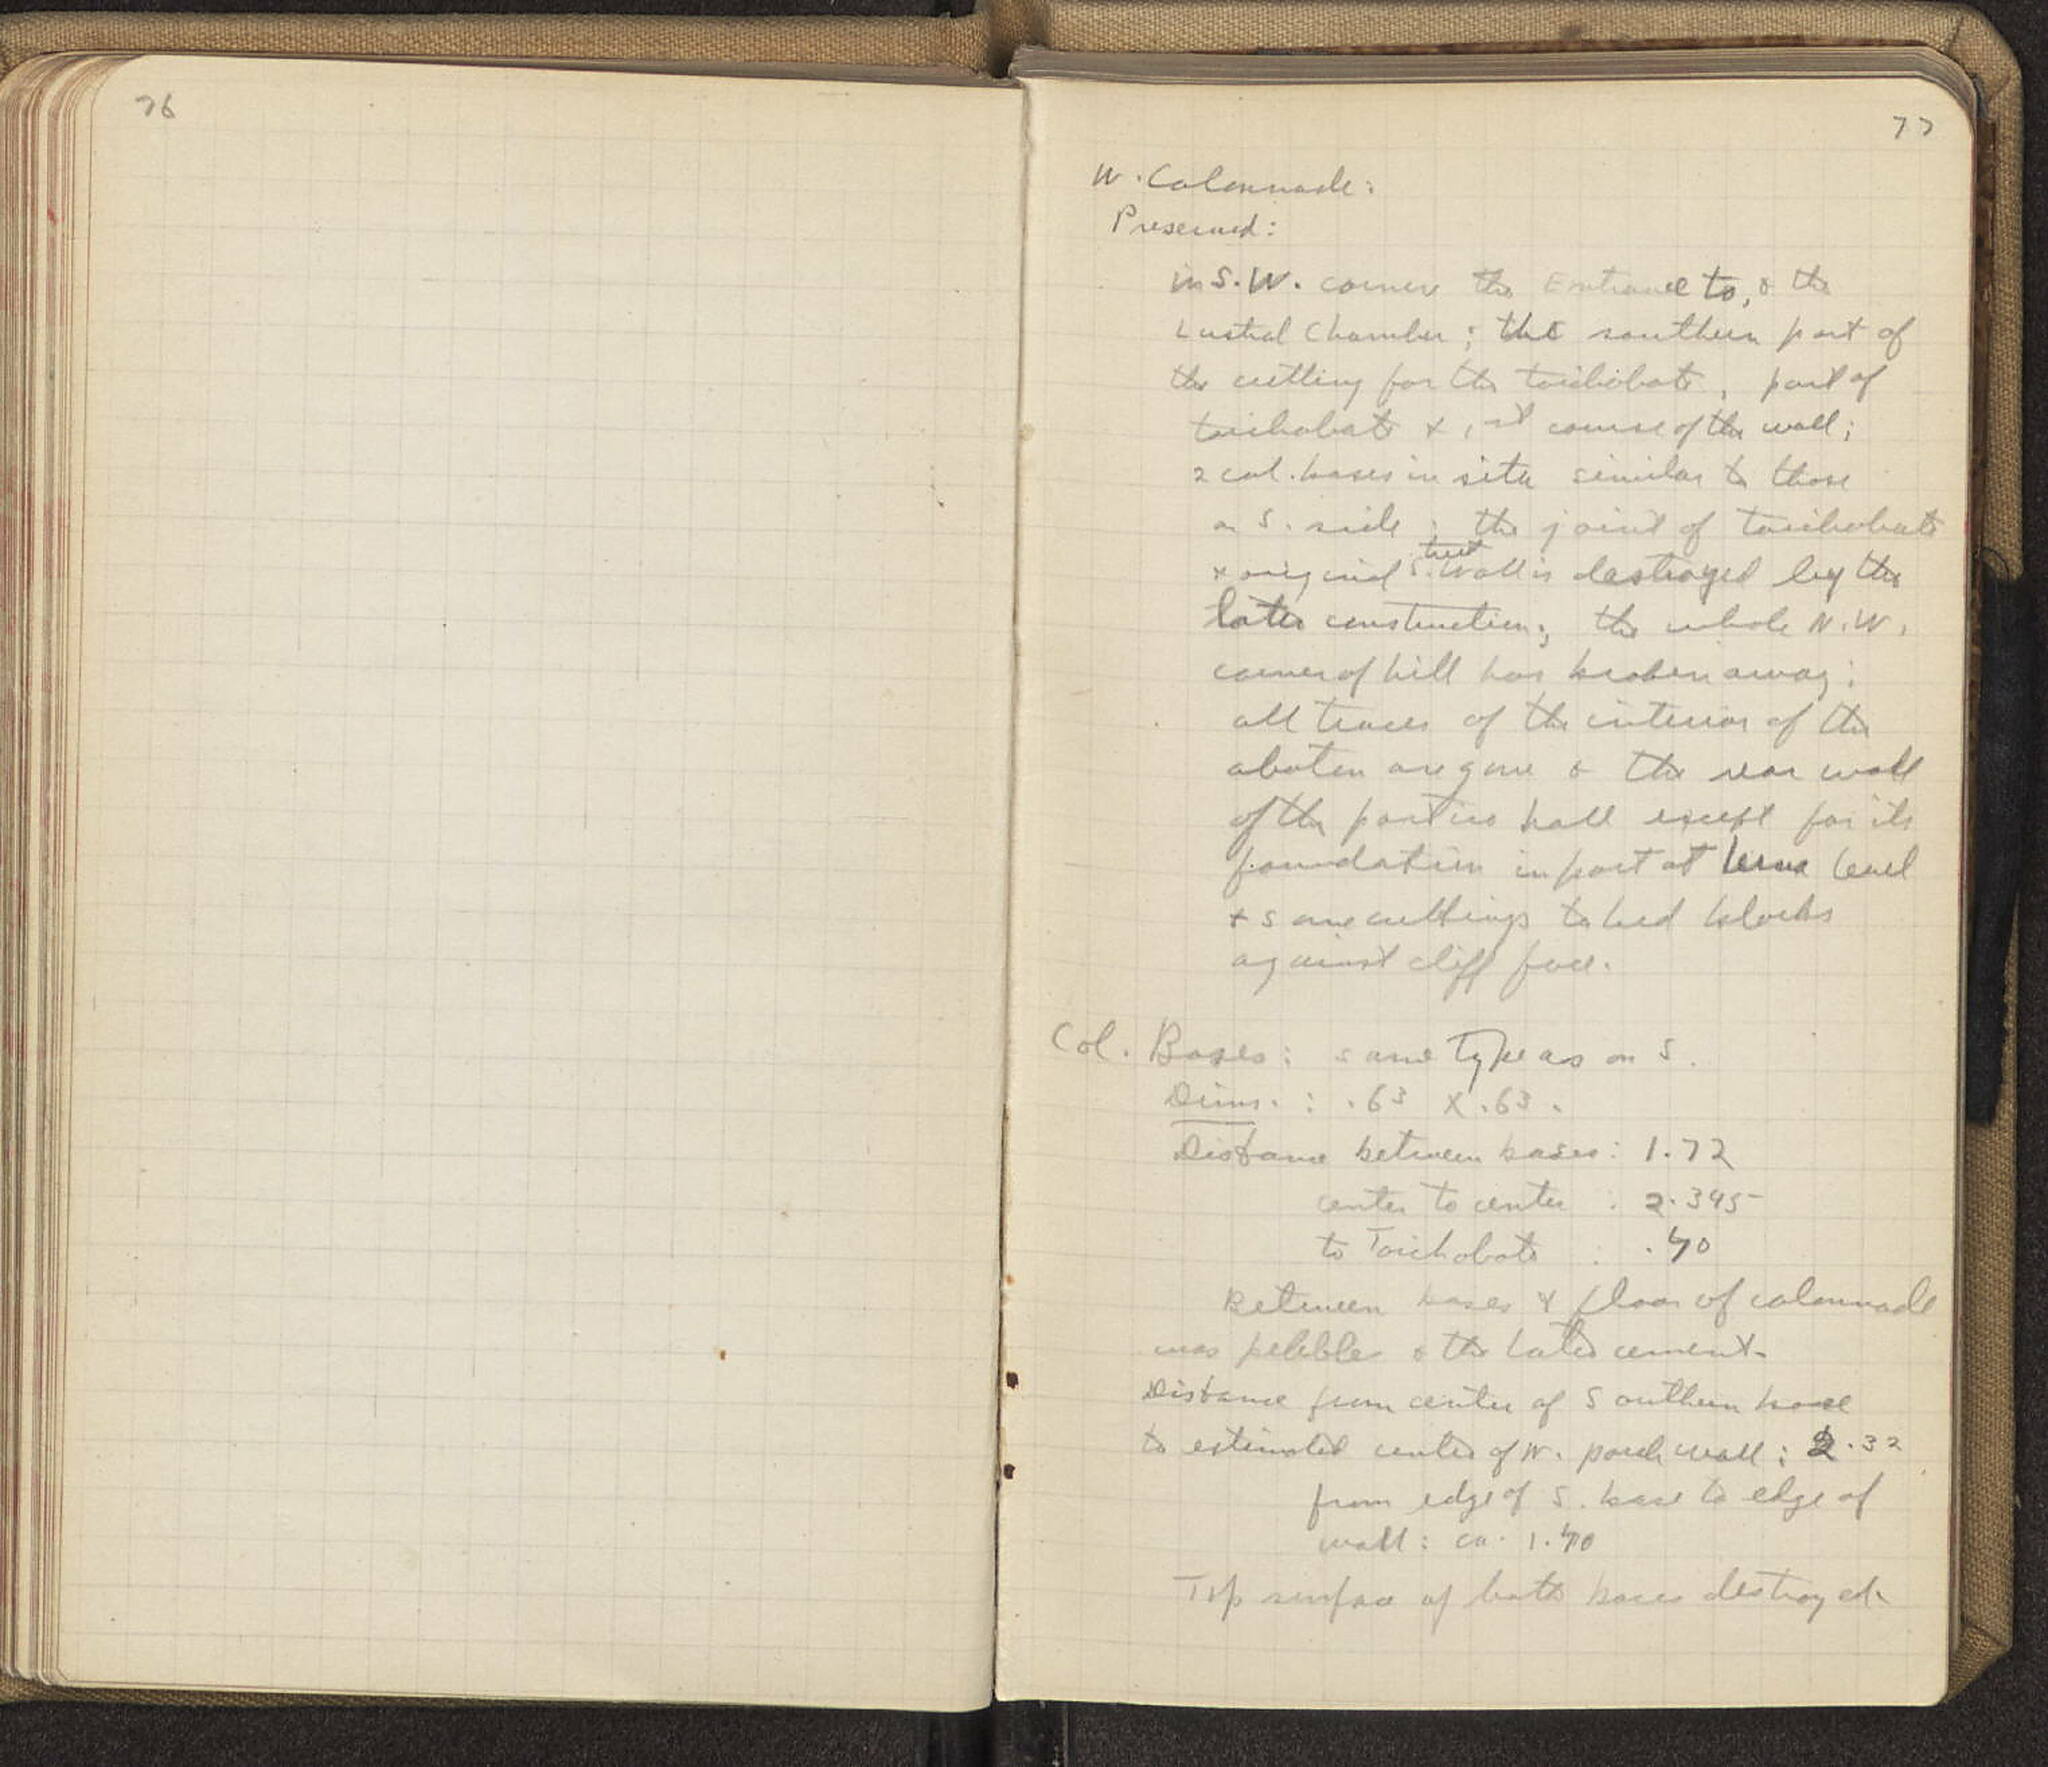 76
77
W. Colonnade:
Preserved:
in S.W. corner the Entrance to, & the
Lustral Chamber; the southern part of
the cutting for the toichobate, part of
toichobate + 1st course of the wall;
2 col. bases in situ similar to those
on S. side; the joint of toichobate
+ original S. Wall is destroyed by the
later construction; the whole N.W.
corner of hill has broken away;
all traces of the interior of the
abaton are gone & the rear wall
of the portico hall except for its
foundation in part at Lerna level
+ some cuttings to bed blocks
against cliff face.
Col. Bases: same type as on S.
Dims.: .63 X .63.
Distance between bases: 1.72
center to center : 2.345
to Toichobate : .40
Between bases & floor of colonnade
was pebble & the later cement.
Distance from center of Southern base
to estimated center of N. porch wall: 2.32
from edge of S. base to edge of
wall: ca. 1.40
Top surface of both bases destroyed.